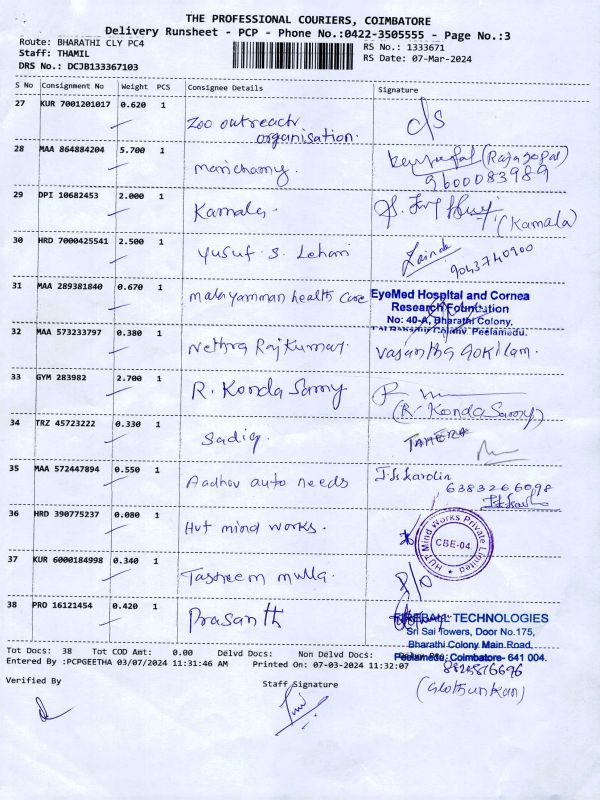 THE PROFESSIONAL COURIERS, COIMBATORE
Delivery Runsheet - PCP - Phone No.:0422-3505555 - Page No.:3
Route: BHARATHI CLY PC4
Staff: THAMIL
DRS No.: DCJB133367103
RS No.: 1333671
RS Date: 07-Mar-2024
S No Consignment No Weight PCS Consignee Details Signature
27 KUR 7001201017 0.620 1 Zoo outreach organisation.
28 MAA 864884204 5.700 1 marichamy. (Rajagopal)
9600083989
29 DPI 10682453 2.000 1 Kamala. (Kamala)
30 HRD 7000425541 2.500 1 Yusuf. S. Lehari
9043740900
31 MAA 289381840 0.670 1 malayamman health care EyeMed Hospital and Cornea
Research Foundation
No: 40-A, Bharathi Colony,
Peelamedu,
32 MAA 573233797 0.380 1 Nethra Rajkumar. Vasantha Gokilam.
33 GYM 283982 2.700 1 R. Konda Samy
(R. Konda Samy)
34 TRZ 45723222 0.330 1 Sadiq. TAHERA
35 MAA 572447894 0.550 1 Aadhav auto needs
6383266098
36 HRD 390775237 0.080 1 Hut mind works. HUT Mind Works Private Limited
CBE-04
37 KUR 6000184998 0.340 1 Tasneem mulla.
38 PRO 16121454 0.420 1 Prasanth FIREBALL TECHNOLOGIES
Sri Sai Towers, Door No.175,
Bharathi Colony Main Road,
Peelamedu, Coimbatore- 641 004.
Tot Docs: 38 Tot COD Amt: 0.00 Delvd Docs: Non Delvd Docs:
Entered By :PCPGEETHA 03/07/2024 11:31:46 AM Printed On: 07-03-2024 11:32:07
Verified By Staff Signature